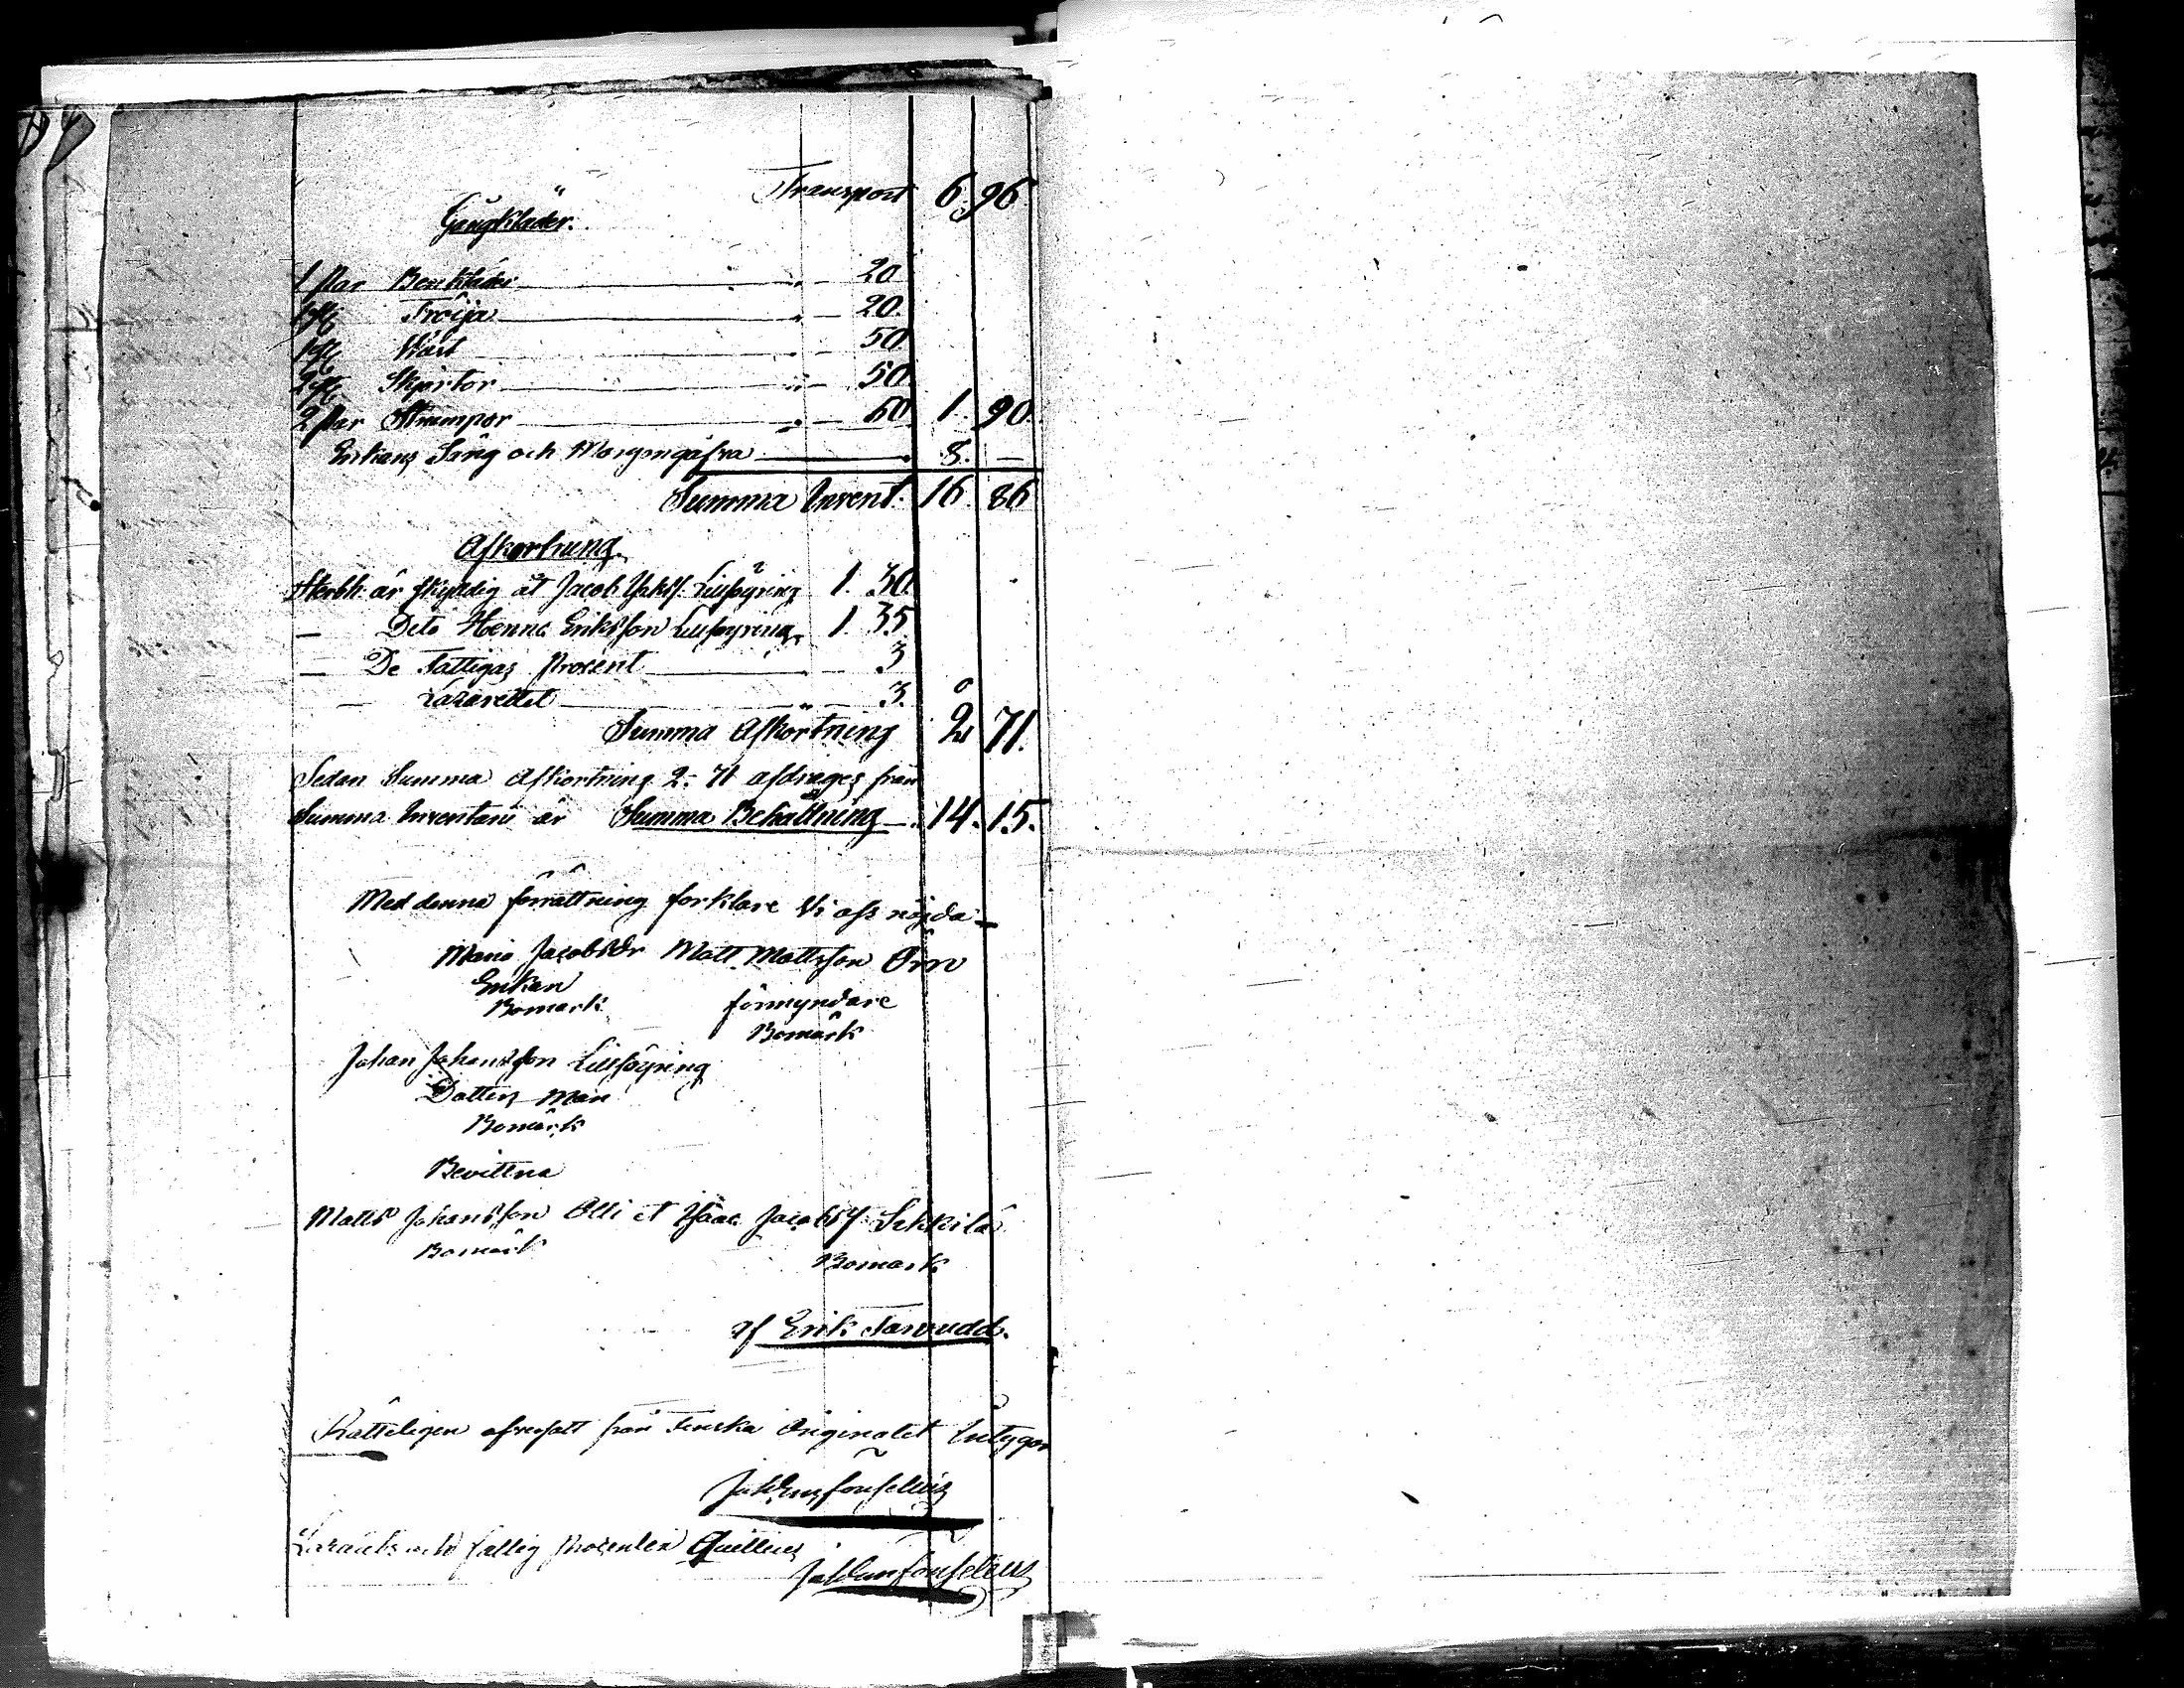 Transport 6. 96.
Gångkläder.
1 par Benkläder 20
1 st Tröija 20.
1 st Wäst 50.
2 st Skjortor 50
2 par Strumpor 50 1. 90.
Enkans Säng och Morgongåfva 8. —
Summa Invent. 16. 86
Afkortning.
Sterbh. är skyldig åt Jacob 1. 30
— Dito Henric Eriksson 1. 35
— De Fattigas Procent 3
— Lazarettet 3.
Summa Afkortning 2 71.
Sedan Summa Afkortning 2: 71 afdrages från
Summa Inventarii är Summa Behållning 14. 15.
Med denna förrättning forklare Vi oss nöjda —
Maria Jacobsdr Matt Mattsson Örn
Enkan
Bomärk förmyndare
Bomärk
Johan Johansson
Dotters Män
Bomärk
Bevittna
Matts Johansson Olli et Isaac Jacobss
Bomärk Bomärk
af Erik Tarvudd.
Rätteligen afversatt från Finska Originalet Intygar
Lazaretts och fattig procenten Quitteras